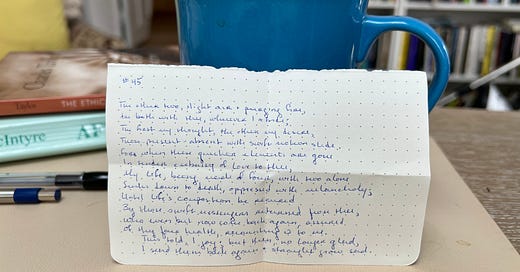 Taylor THE ETHIC
cIntyre AF
#45
The other two, slight air & purging fire,
both with thee, wherever I abide;
The first my thought, the other my desire,
These present-absent with swift motion slide.
For when these quicker elements are gone
In tender embassy of love to thee,
My life, being made of four, with two alone
Sinks down to death, oppressed with melancholy;
Until life's composition be recured
By those swift messengers returned from thee,
who even but now come back again, assured
Of thy fair health, recounting it to me.
This told, I joy; but then, no longer glad,
I send them back again & straight grow sad.